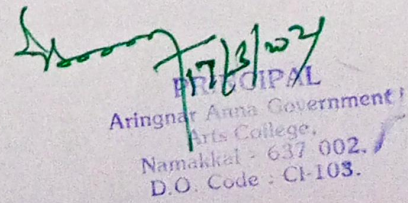 17/3/2021
PRINCIPAL
Aringnar Anna Government
Arts College,
Namakkal - 637 002.
D.O. Code : CI-103.